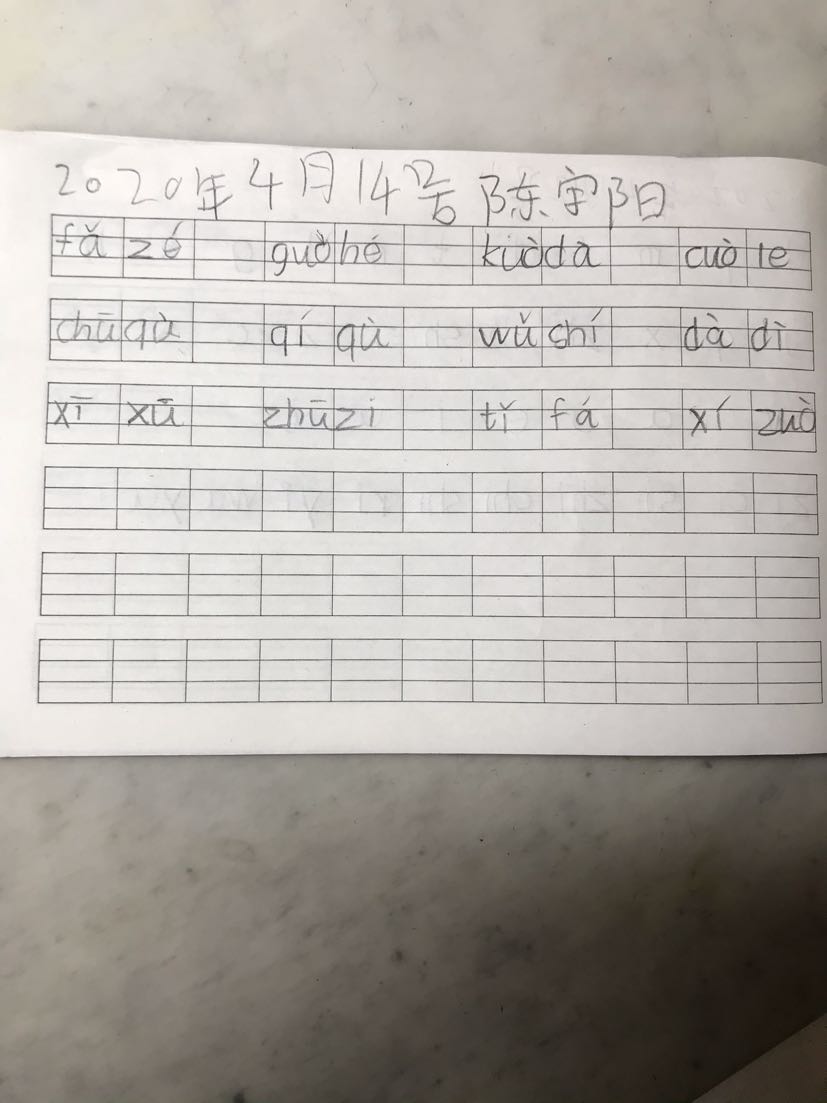 2020年4月14号 陈宇阳
fǎ zé guò hé kuò dà cuò le
chū qù qí qù wǔ shí dà dì
xī xū zhū zi tǐ fá xí zuò